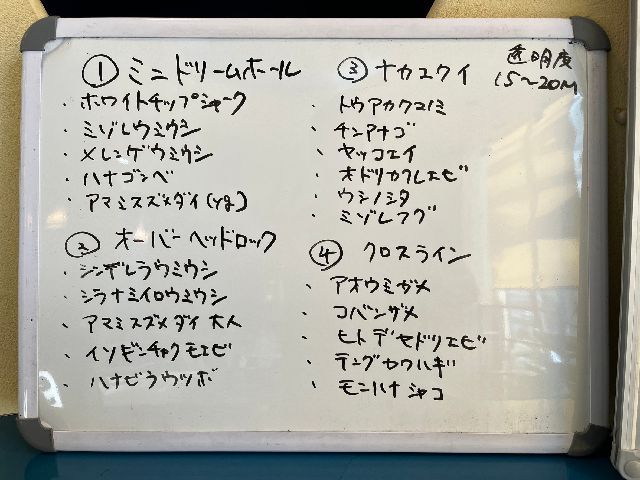 ① ミニドリームホール
・ホワイトチップシャーク
・ミゾレウミウシ
・メレンゲウミウシ
・ハナゴンベ
・アマミスズメダイ (yg)
② オーバーヘッドロック
・シンデレラウミウシ
・シラナミイロウミウシ
・アマミスズメダイ 大人
・イソギンチャクモエビ
・ハナビラウツボ
③ ナカユクイ
・トウアカクマノミ
・チンアナゴ
・ヤッコエイ
・オドリカクレエビ
・ウシノシタ
・ミゾレフグ
④ クロスライン
・アオウミガメ
・コバンザメ
・ヒトデヤドリエビ
・テングカワハギ
・モンハナシャコ
透明度
15〜20M